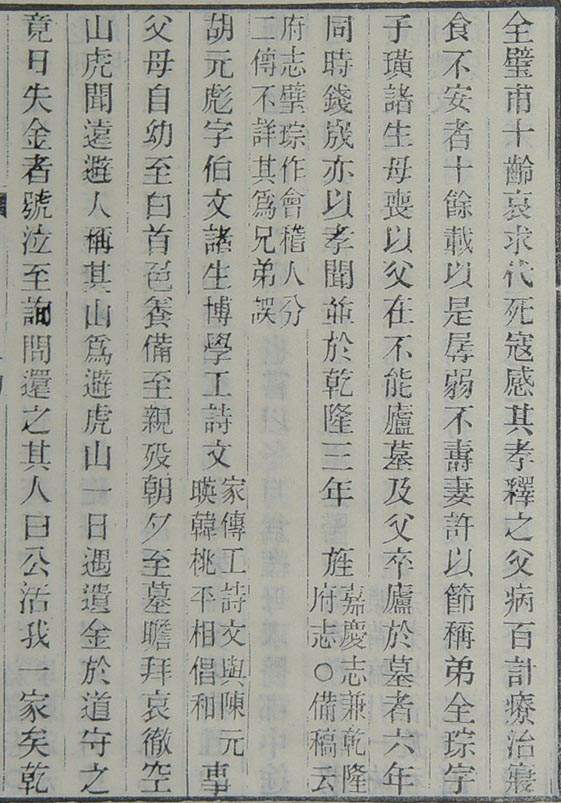 全璧甫十齡哀求代死寇感其孝釋之父病百計療治寢
食不安者十餘載以是孱弱不壽妻許以節稱弟全琮字
子璜諸生母喪以父在不能廬墓及父卒廬於墓者六年
同時錢宬亦以孝聞並於乾隆三年 旌嘉慶志兼乾隆府志○備稿云
府志璧琮作會稽人分
二傳不詳其爲兄弟誤
胡元彪字伯文諸生博學工詩文家傳工詩文與陳元暎韓桃平相倡和事
父母自幼至白首色養備至親歿朝夕至墓瞻拜哀徹空
山虎聞遠避人稱其山爲避虎山一日遇遺金於道守之
竟日失金者號泣至詢問還之其人曰公活我一家矣乾